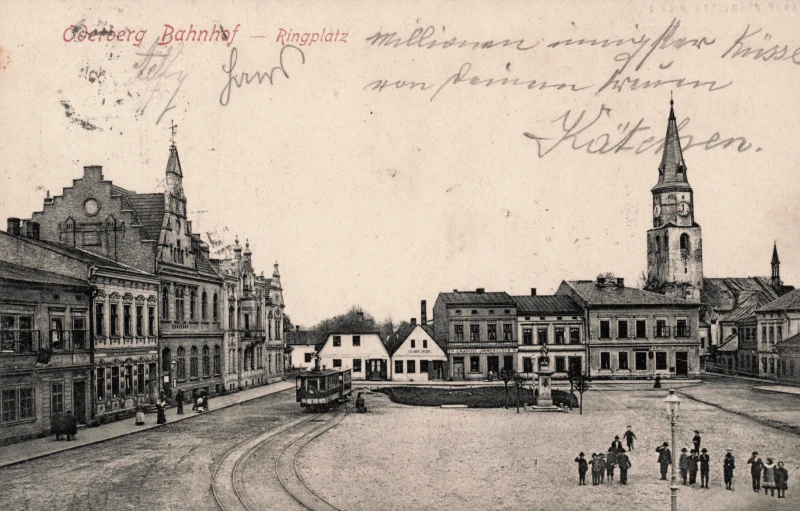 Oderberg Bahnhof — Ringplatz
Millionen innigster Küsse
von Deinem treuen
Kätchen.